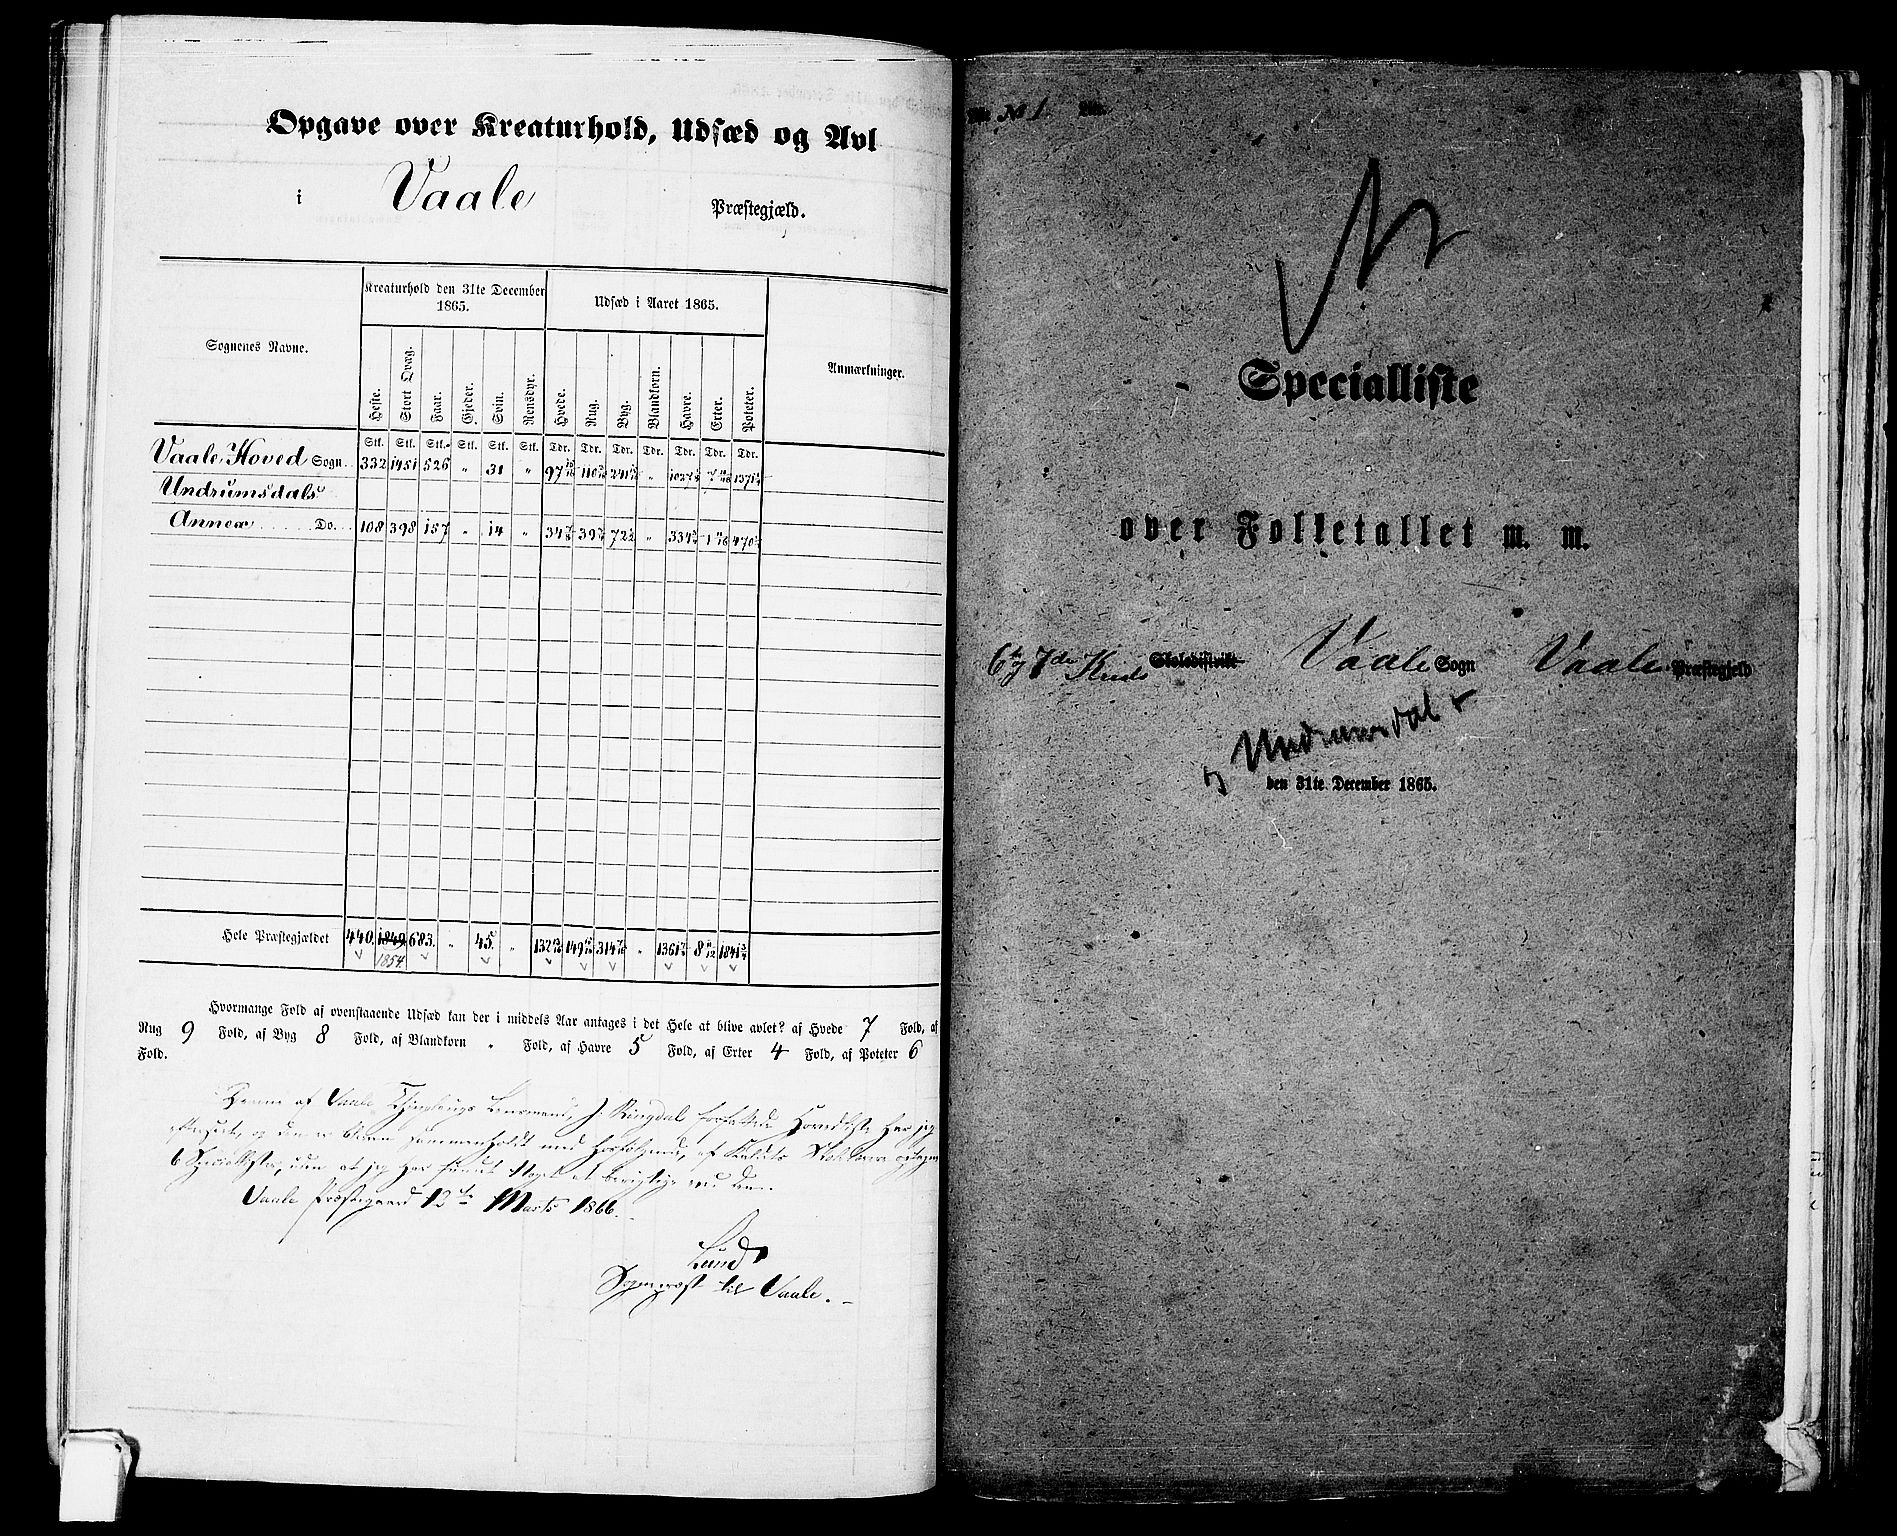 Opgave over Kreaturhold, Udsæd og Avl
i Vaale Præstegjæld.
Sognenes Navne.
Kreaturhold den 31te December 1865.
Udsæd i Aaret 1865.
Anmærkninger.
Heste. Stort Qvæg. Faar. Gjeder. Svin. Rensdyr. Hvede. Rug. Byg. Blandkorn. Havre. Erter. Poteter.
Stk. Stk. Stk. Stk. Stk. Stk. Tdr. Tdr. Tdr. Tdr. Tdr. Tdr. Tdr.
Vaale Hoved Sogn 332 1451 526 " 31 " 97 110 241 " 1027 7 1371
Undrumsdals
Annex Do. 108 398 157 " 14 " 34 39 72½ " 334 1 470
Hele Præstegjældet 440. 1849 683. " 45. " 132 149 314 " 1361 8 1841
1854
Hvormange Fold af ovenstaaende Udsæd kan der i middels Aar antages i det Hele at blive avlet? af Hvede 7 Fold, af
Rug 9 Fold, af Byg 8 Fold, af Blandkorn " Fold, af Havre 5 Fold, af Erter 4 Fold, af Poteter 6
Fold.
Denne af Vaale Thinglaugs Lensmand, J. Ringdal forfattede Hovedliste har jeg
Vaale Præstegaard 12te Marts 1866.
Lund
Sognepræst til Vaale.
No 1.
Specialliste
over Folketallet m. m.
6te og 7de Kreds Skoledistrikt Vaale Sogn Vaale Præstegjeld
Undrumsdal
den 31te December 1865.